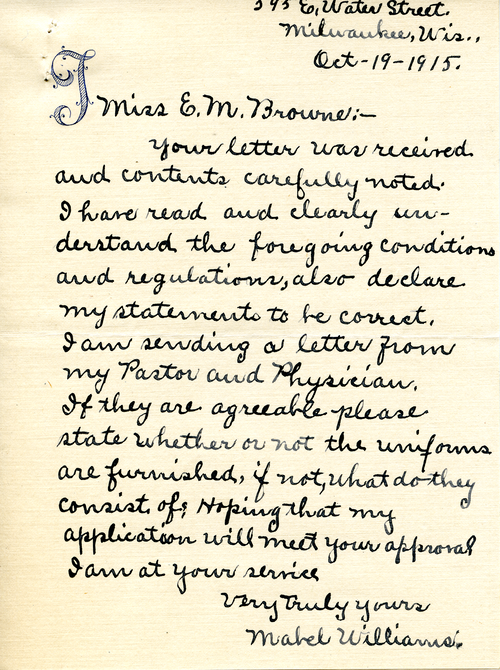 595 E. Water Street.
Milwaukee, Wis.,
Oct-19-1915.
J
Miss E. M. Browne:-
Your letter was received
and contents carefully noted.
I have read and clearly un-
derstand the foregoing conditions
and regulations, also declare
my statements to be correct.
I am sending a letter from
my Pastor and Physician.
If they are agreeable please
state whether or not the uniforms
are furnished, if not, what do they
consist of; Hoping that my
application will meet your approval
I am at your service
Very truly yours
Mabel Williams.